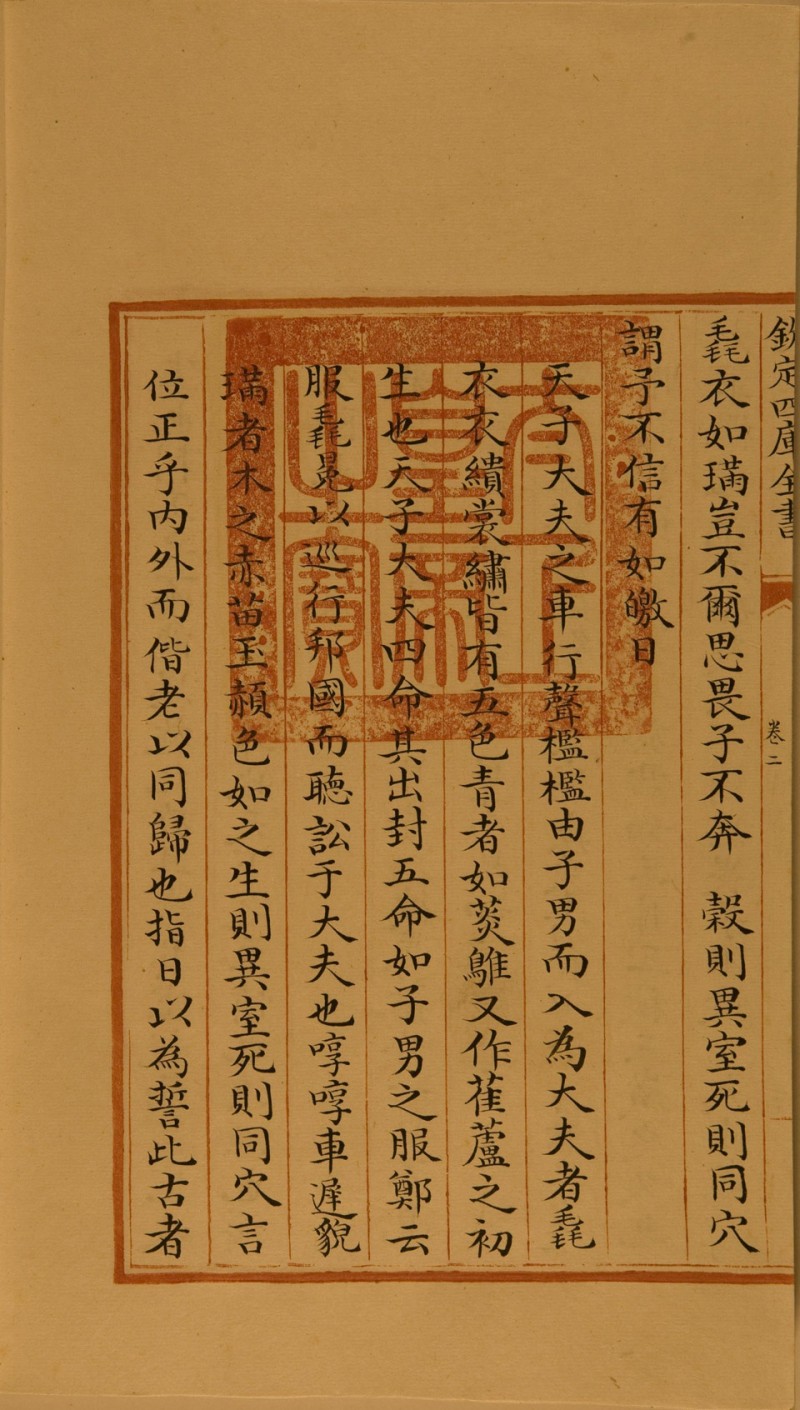 欽定四庫全書
卷二
毳衣如璊豈不爾思畏子不奔 穀則異室死則同穴
謂予不信有如皦日
天子大夫之車行聲檻檻由子男而入為大夫者毳
衣衣繢裳繡皆有五色青者如菼鵻又作萑蘆之初
生也天子大夫四命其出封五命如子男之服鄭云
服毳冕以巡行邦國而聽訟于大夫也啍啍車遲貌
璊者木之赤苗玉赬色如之生則異室死則同穴言
位正乎内外而偕老以同歸也指日以為誓此古者